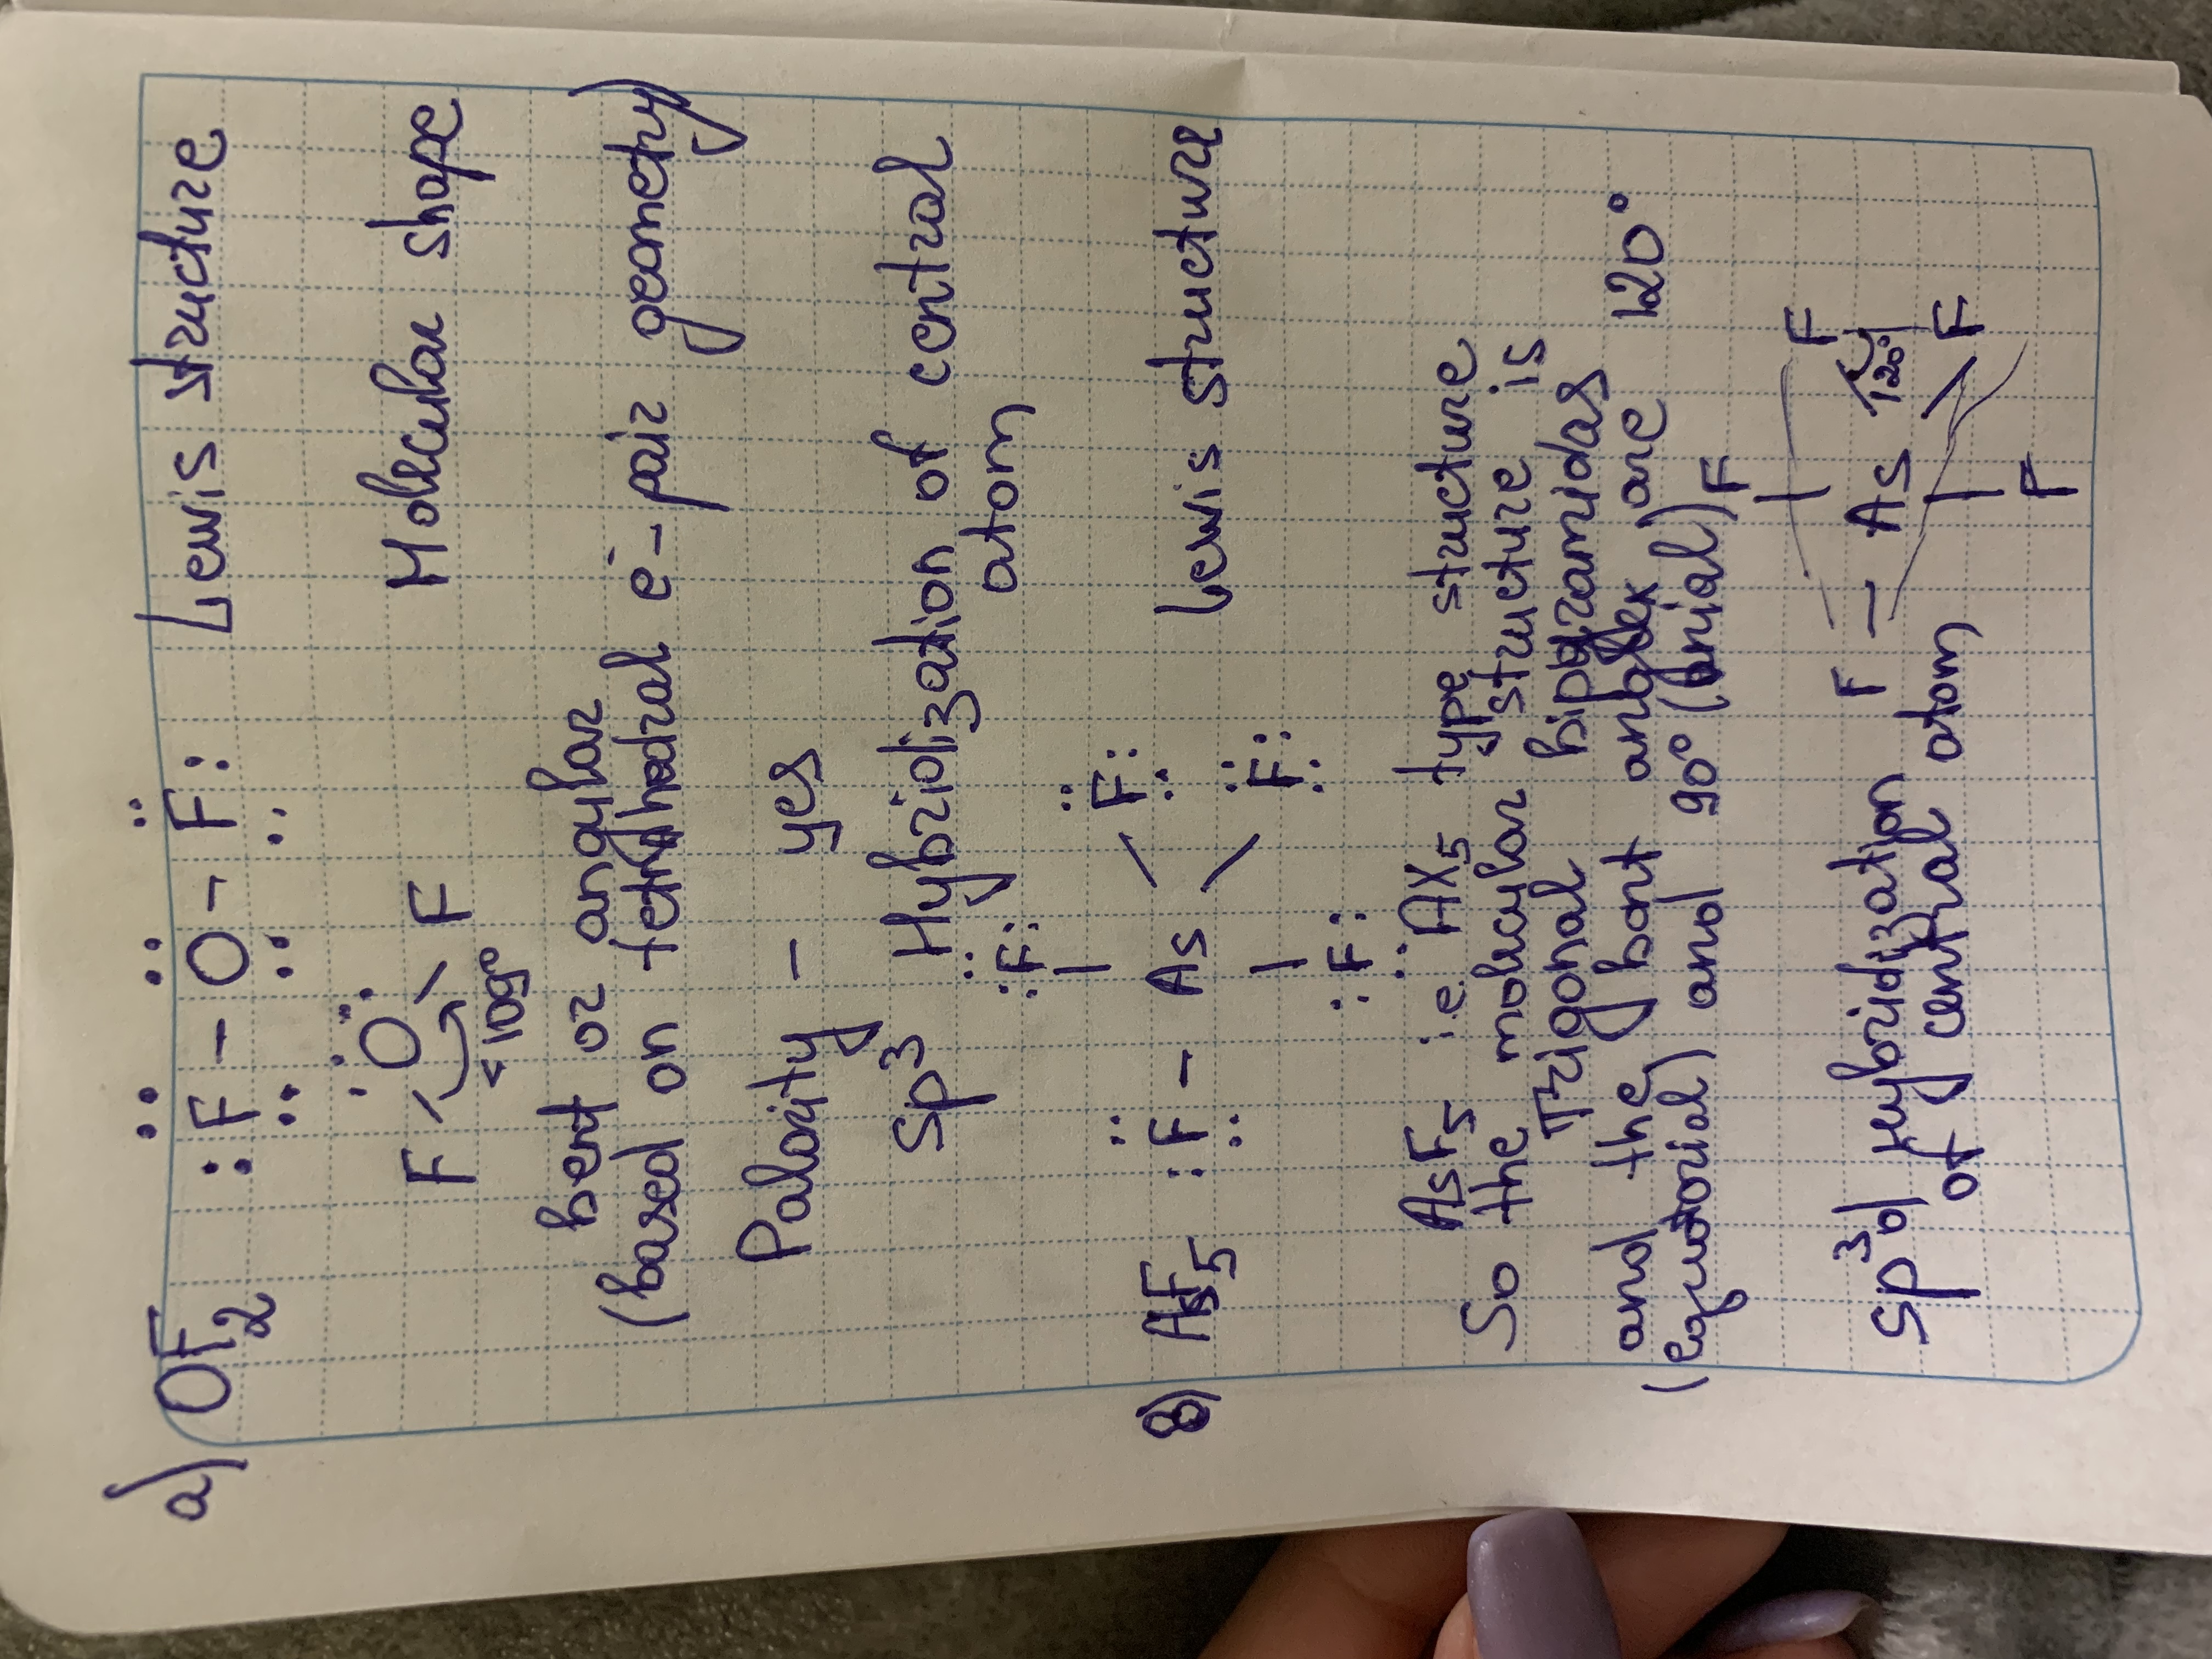 a) OF2 :F-O-F: Lewis structure
O
F F Molecular shape
<109°
bent or angular
(based on tetrahedral e-pair geometry)
Polarity - yes
sp3 Hybridization of central
atom
F F
b) AsF5 :F - As Lewis structure
F F
AsF5 i.e. AX5 type structure
So the molecular structure is
Trigonal
and the bont are 120°
(equatorial) and 90° (anial)
F F
F - As 120°
F F
sp3d hybridization
of central atom